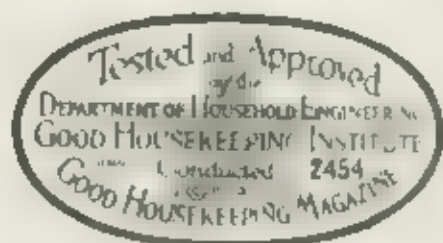 Tested and Approved
by the
DEPARTMENT OF HOUSEHOLD ENGINEERING
GOOD HOUSEKEEPING INSTITUTE
Conducted 2454
GOOD HOUSEKEEPING MAGAZINE